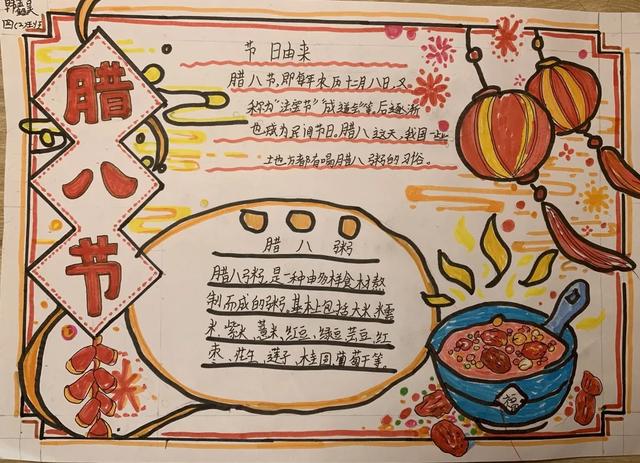 四(2)班
腊
八
节
节日由来
腊八节,即每年农历十二月八日,又
称为"法宝节""成道会"等,后逐渐
也成为民间节日。腊八这天,我国一些
地方都有喝腊八粥的习俗。
腊八粥
腊八粥,是一种由多样食材熬
制而成的粥,基本上包括大米、糯
米、紫米、薏米、红豆、绿豆、芸豆、红
枣、花生、莲子、桂圆、葡萄干等。
福